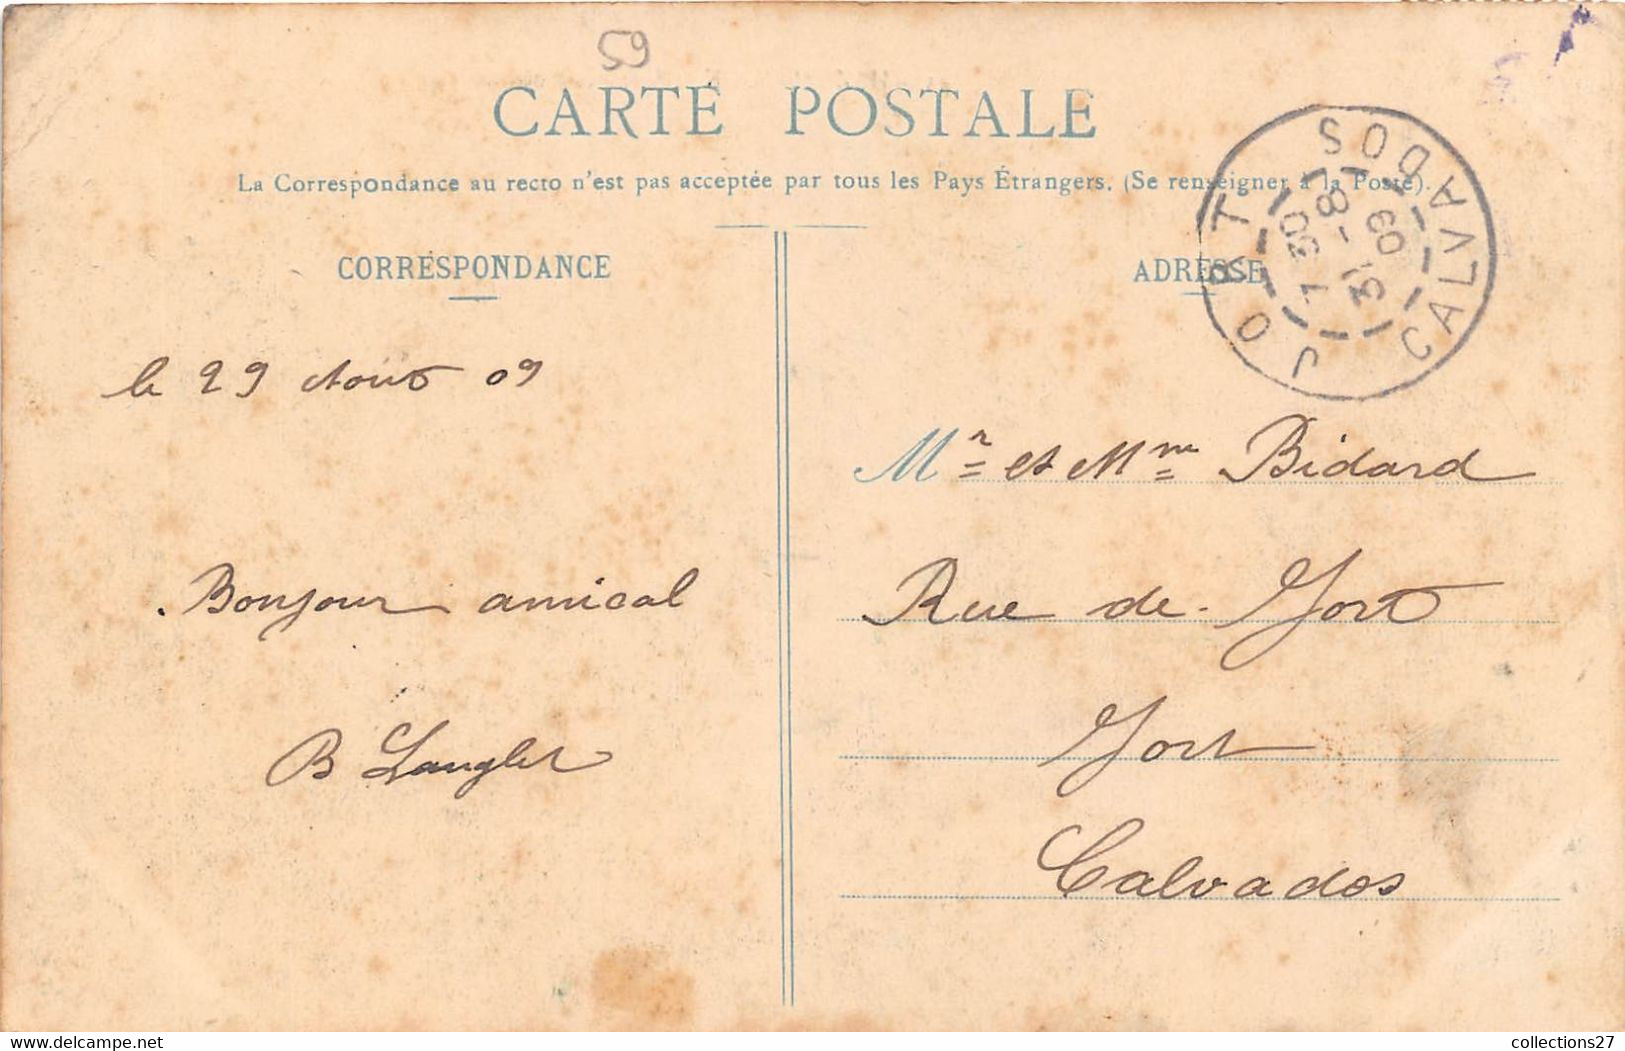 59
CARTE POSTALE
La Correspondance au recto n'est pas acceptée par tous les Pays Étrangers. (Se renseigner à la Poste).
CORRESPONDANCE
ADRESSE
JORT CALVADOS
7 30
31 - 8
09
le 29 Aout 09
Mr et Mme Bidard
Bonjour amical
Rue de Jort
B Langlet
Jort
Calvados
collections27